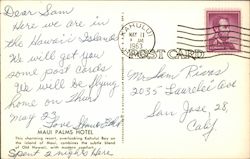 Dear Sam
Here we are in
the Hawaii Islands
We will get you
some post cards
We will be flying
home on Thur
May 23
Love
MAUI PALMS HOTEL
This charming resort, overlooking Kahului Bay on
the island of Maui, combines the subtle blend
of Old Hawaii, with modern comfort.
Spent 2 nights Here
KAHULUI
MAY
1963
POST CARD
Mr Sam
2035 Laurelei Ave
San Jose 28,
Calif